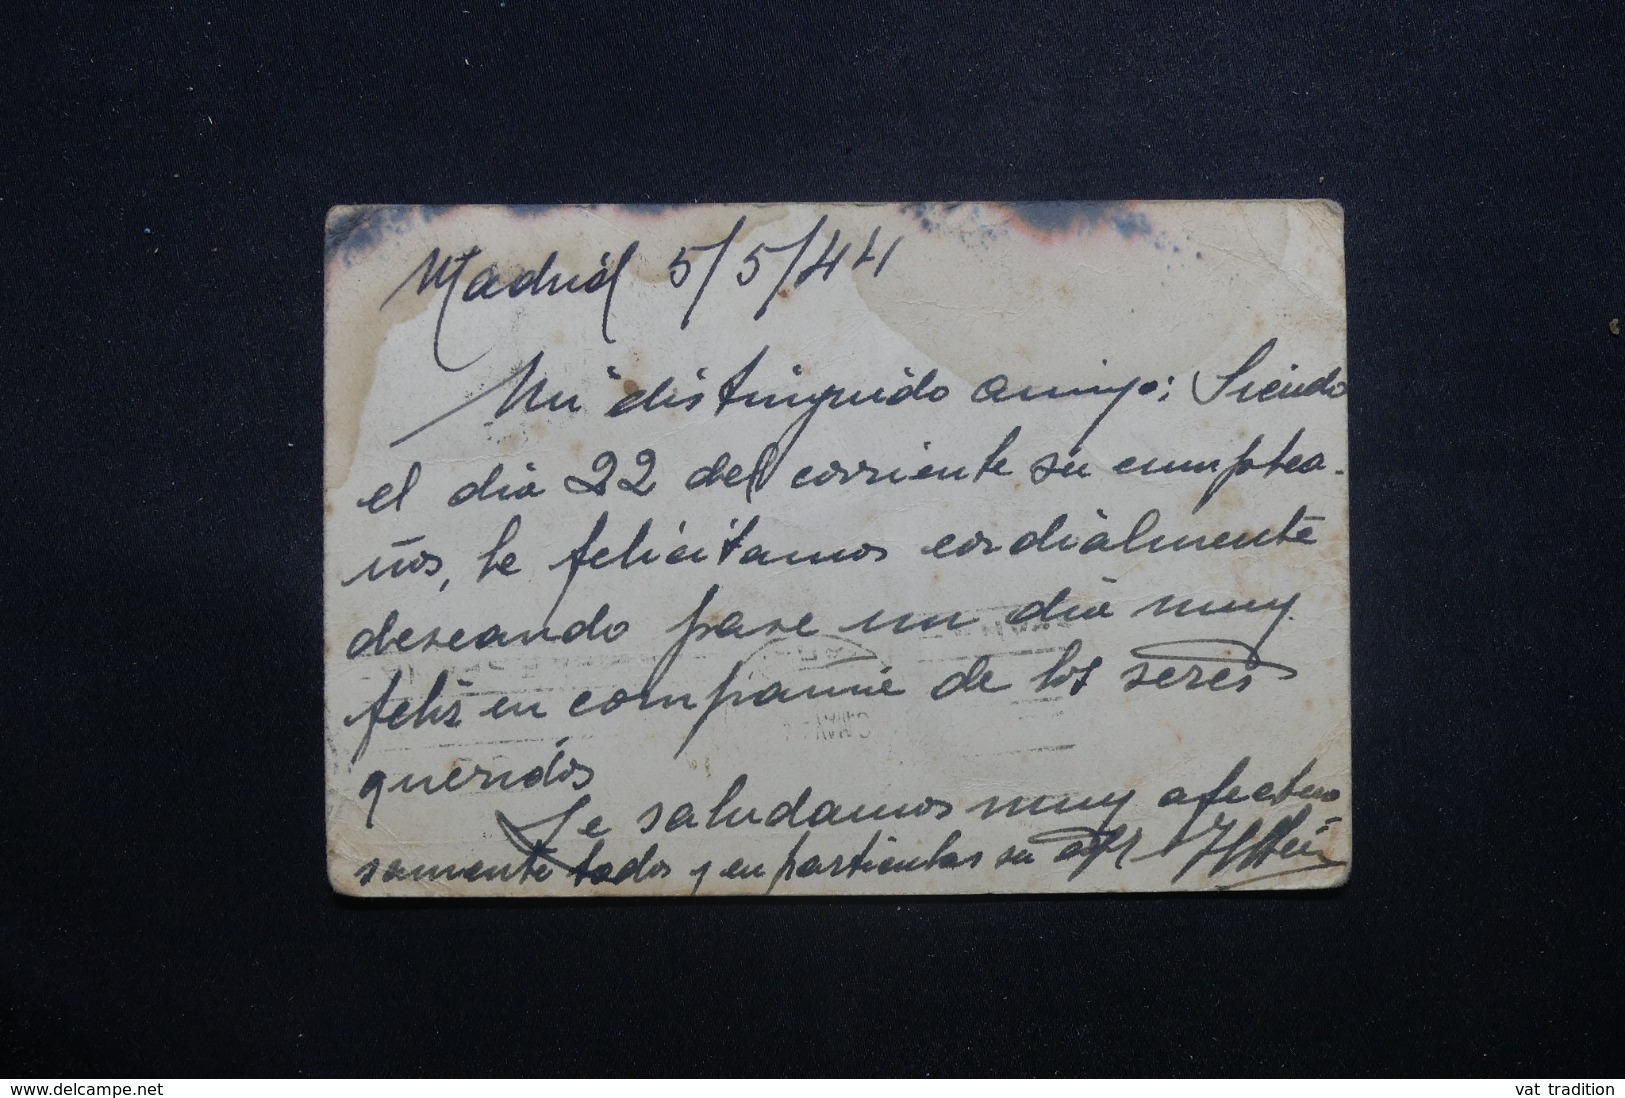 Madrid 5/5/44
Mi distinguido amigo: Siendo
el dia 22 del corriente su cumplea-
ños, le felicitamos cordialmente
deseando pase un dia muy
feliz en compañia de los seres
queridos
Le saludamos muy afectuo
samente todos y en particular su
www.delcampe.net
vat tradition